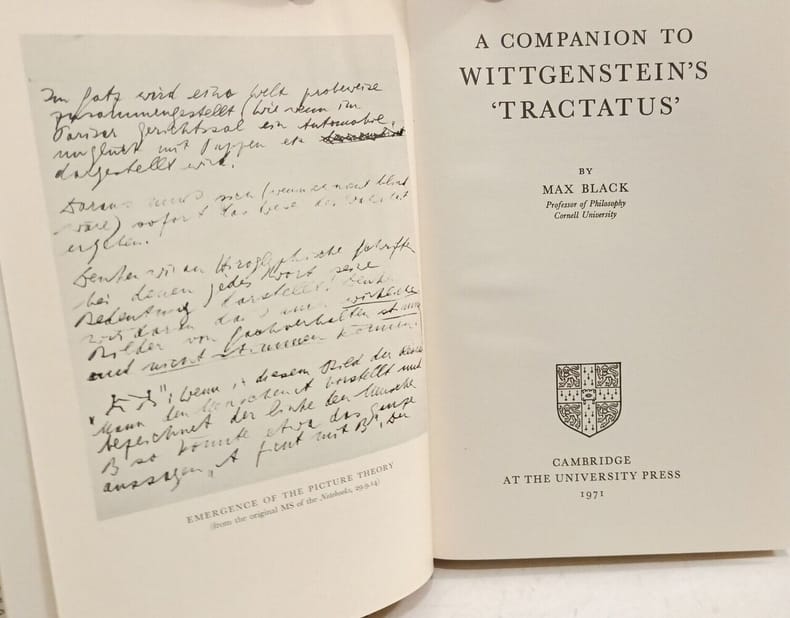 Im Satz wird eine Welt probeweise
zusammengestellt (Wie wenn im
Pariser Gerichtssal ein Automobil-
unglück mit Puppen etc
dargestellt wird.
Daraus muss sich (wenn ich nicht blind
wäre) sofort das Wesen der Wahrheit
ergeben.
Denken wir an Hiroglyphische Schriften
bei denen jedes Wort seine
Bedeutung darstellt! Denken
wir daran dass auch wirkliche
Bilder von Sachverhalten stimmen
und nicht stimmen können.
": Wenn in diesem Bild der rechte
Mann den Menschen A vorstellt und
bezeichnet der linke den Menschen
B so könnte etwa das ganze
aussagen „A ficht mit B". Der
EMERGENCE OF THE PICTURE THEORY
(from the original MS of the Notebooks, 29.9.14)
A COMPANION TO
WITTGENSTEIN'S
'TRACTATUS'
BY
MAX BLACK
Professor of Philosophy
Cornell University
CAMBRIDGE
AT THE UNIVERSITY PRESS
1971